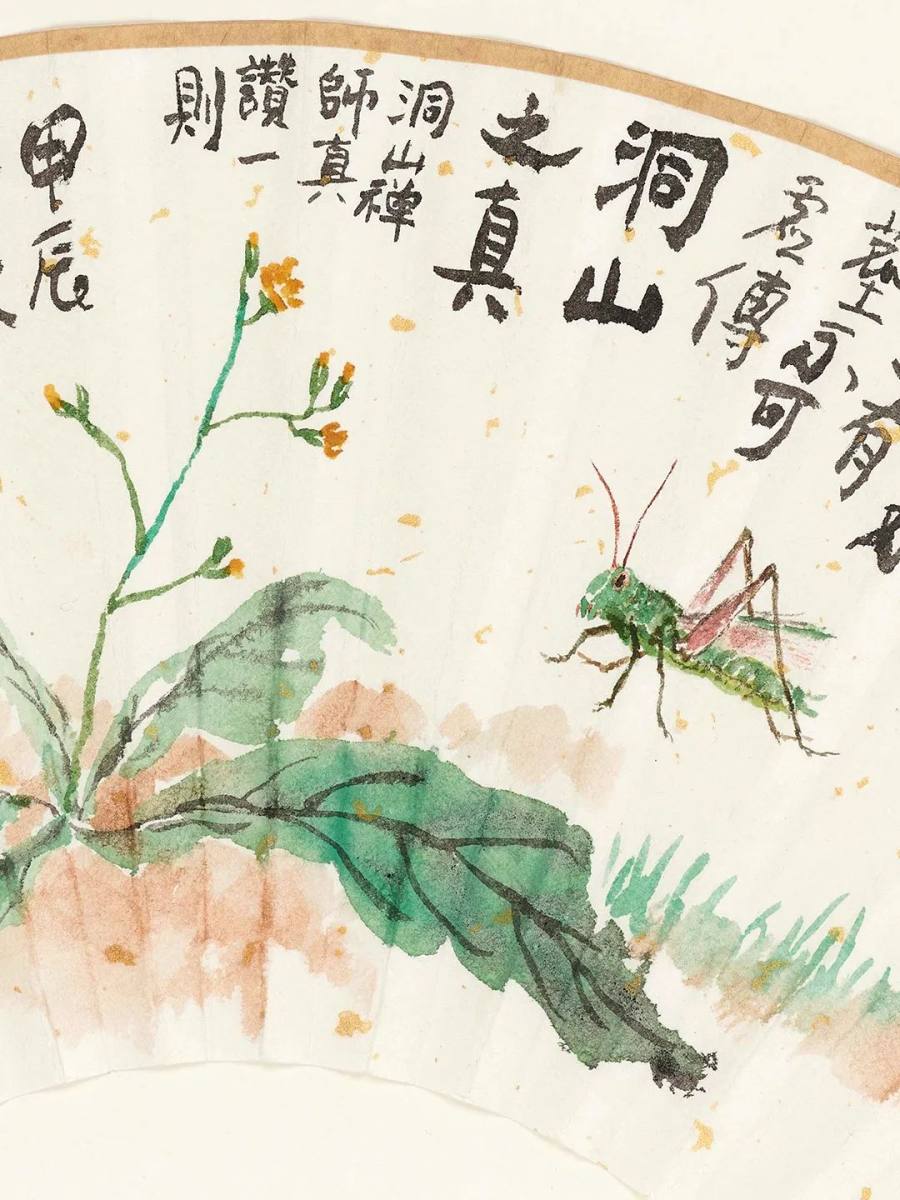 有
可
傳
洞山
之真
洞山禅
師真
讚一
則
甲辰